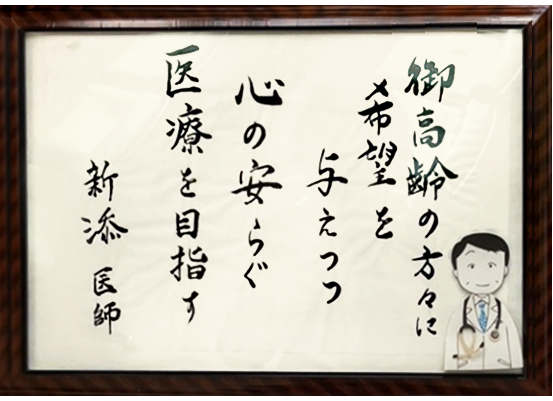 御高齢の方々に
希望を
与えつつ
心の安らぐ
医療を目指す
新添 医師